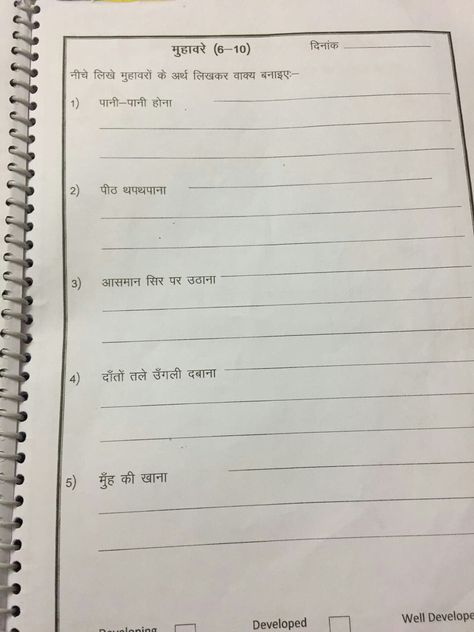 मुहावरे (6–10) दिनांक
नीचे लिखे मुहावरों के अर्थ लिखकर वाक्य बनाइएः–
1) पानी–पानी होना
2) पीठ थपथपाना
3) आसमान सिर पर उठाना
4) दाँतों तले उँगली दबाना
5) मुँह की खाना
Developing Developed Well Develope